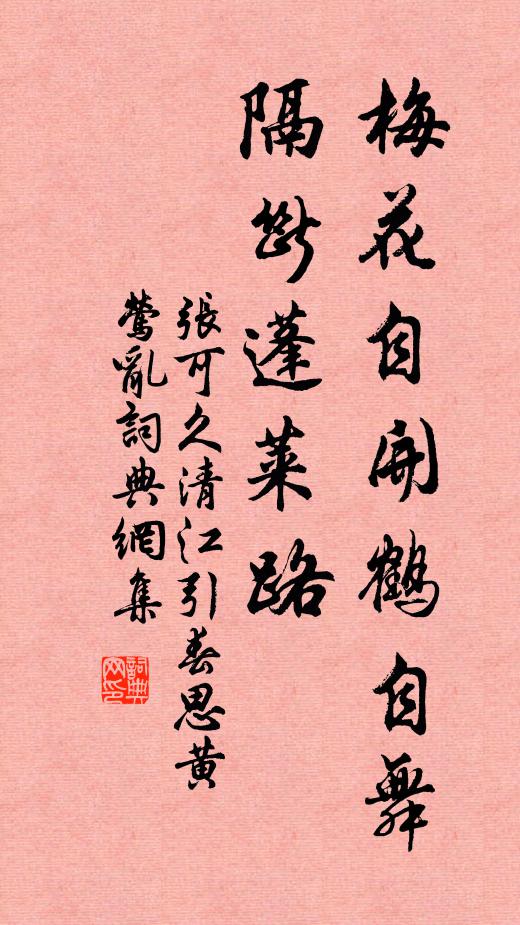 梅花自開鶴自舞
隔斷蓬萊路
張可久清江引春思黃
鶯亂詞典網集
詞典網印